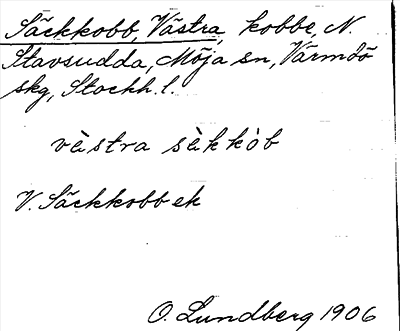 Säckkobb, Västra, kobbe, N.
Stavsudda, Möja sn, Värmdö
skg, Stockh. l.
vèstra sèkkòb
V. Säckkobb ek
O. Lundberg 1906